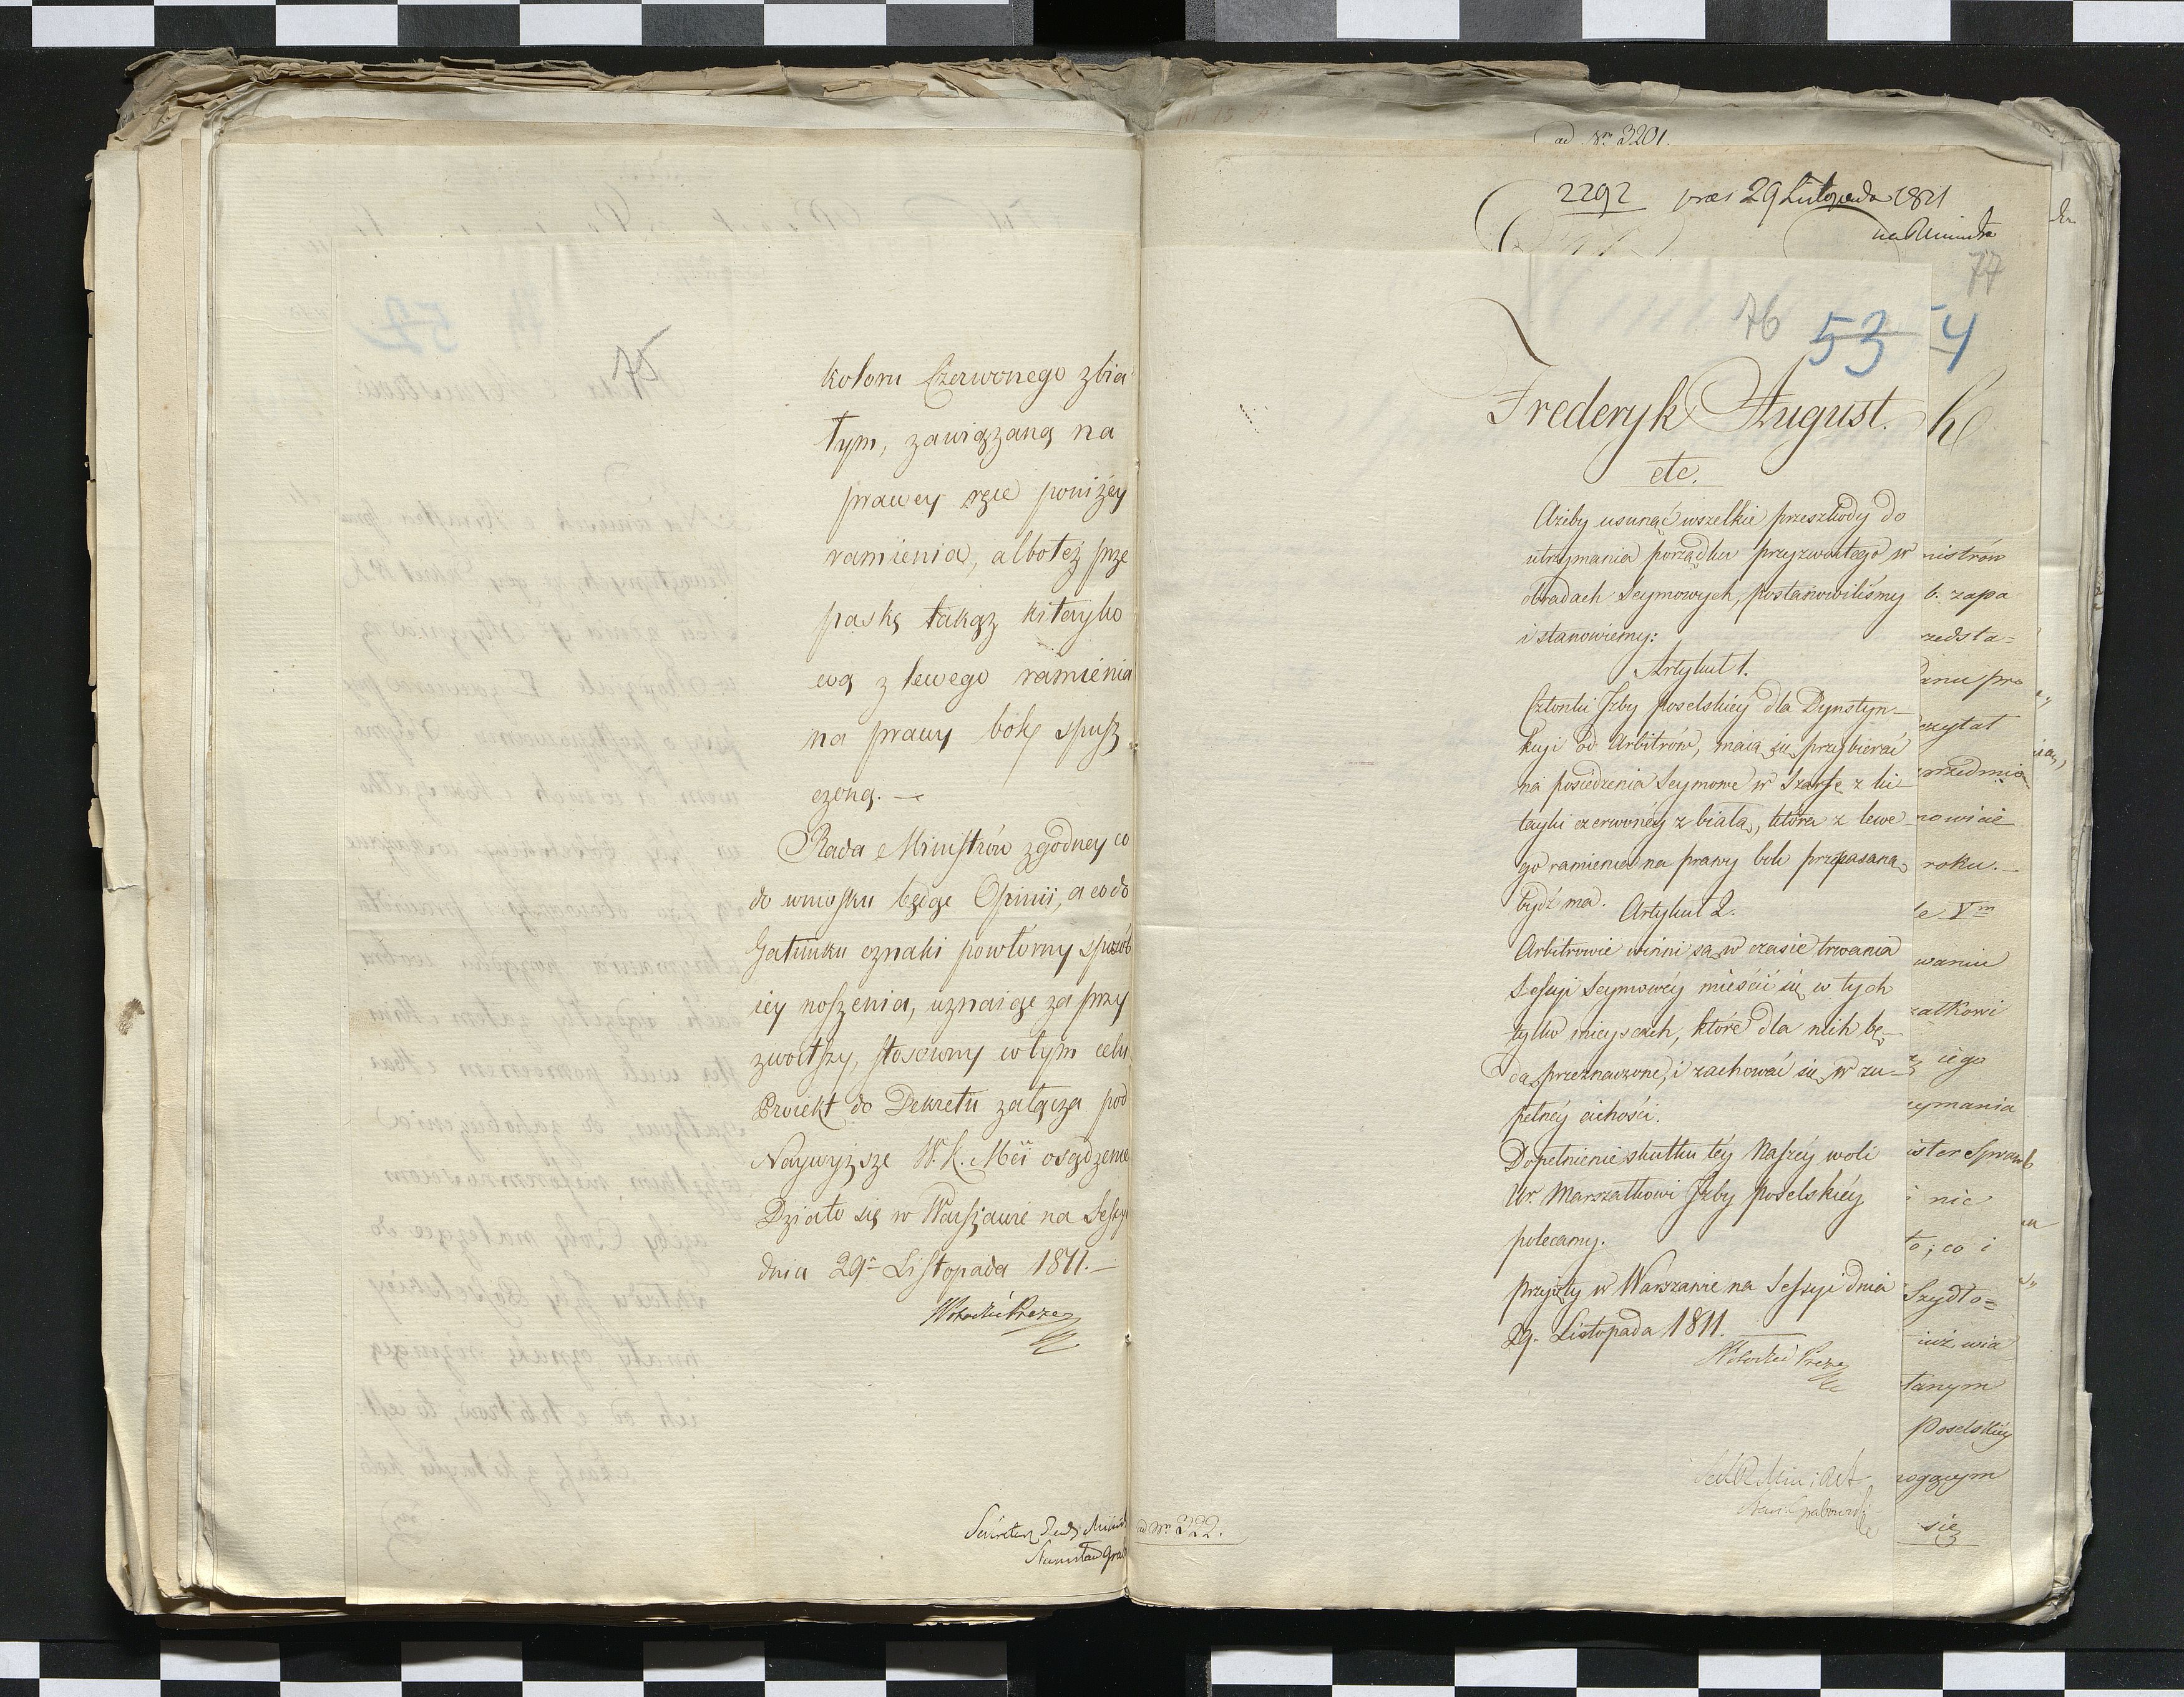 75
koloru Czerwonego z bia
łym, zawiązaną na
prawey ręce poniżey
ramienia, albo też prze
paskę takąż kitayko
wą z lewego ramienia
na prawy bok spusz
czoną. —
Rada Ministrów zgodney co
do wniosku będąc Opinii, a co do
Gatunku oznaki powtórny sposób
iey noszenia, uznaiąc za przy
zwoitszy, stosowny w tym celu
Proiekt do Dekretu załącza pod
Naywyższe W. K. Mci osądzenie
Działo się w Warszawie na Sessyi
dnia 29. Listopada 1811. —
Sekretarz Rady Minist
Stanisław Grab
ad Nr. 3201.
2292 præs 29 Listopada 1811
77
76 53 54
Frederyk August.
etc.
Ażeby usunąć wszelkie przeszkody do
utrzymania porządku przyzwoitego w
obradach Seymowych, postanowiliśmy
i stanowiemy:
Artykuł 1.
Członki Izby poselskiey dla Dystyn-
kcyi od Arbitrów, maią się przybierać
na posiedzenia Seymowe w Szarfę z ki-
tayki czerwoney z białą, która z lewe
go ramienia na prawy bok przepasaną
bydź ma. Artykuł 2.
Arbitrowie winni są w czasie trwania
Sessyi Seymowey mieścić się w tych
tylko mieyscach, które dla nich bę-
dą przeznaczone, i zachować się w zu-
pełney cichości.
Dopełnienie skutku tey Naszey woli
Ur. Marszałkowi Izby poselskiey
polecamy.
przyięty w Warszawie na Sessyi dnia
29. Listopada 1811.
ad Nr. 322.
nistrów
b. zapa
zedsta=
anu pro
czytał
przedmio
nowicie
roku. —
le Vm
waniu
załkowi
iego
zymania
ister Spraw
i nic
to; co i
Szydło=
iuż wia
tanym
Poselskiey
nogącym
się